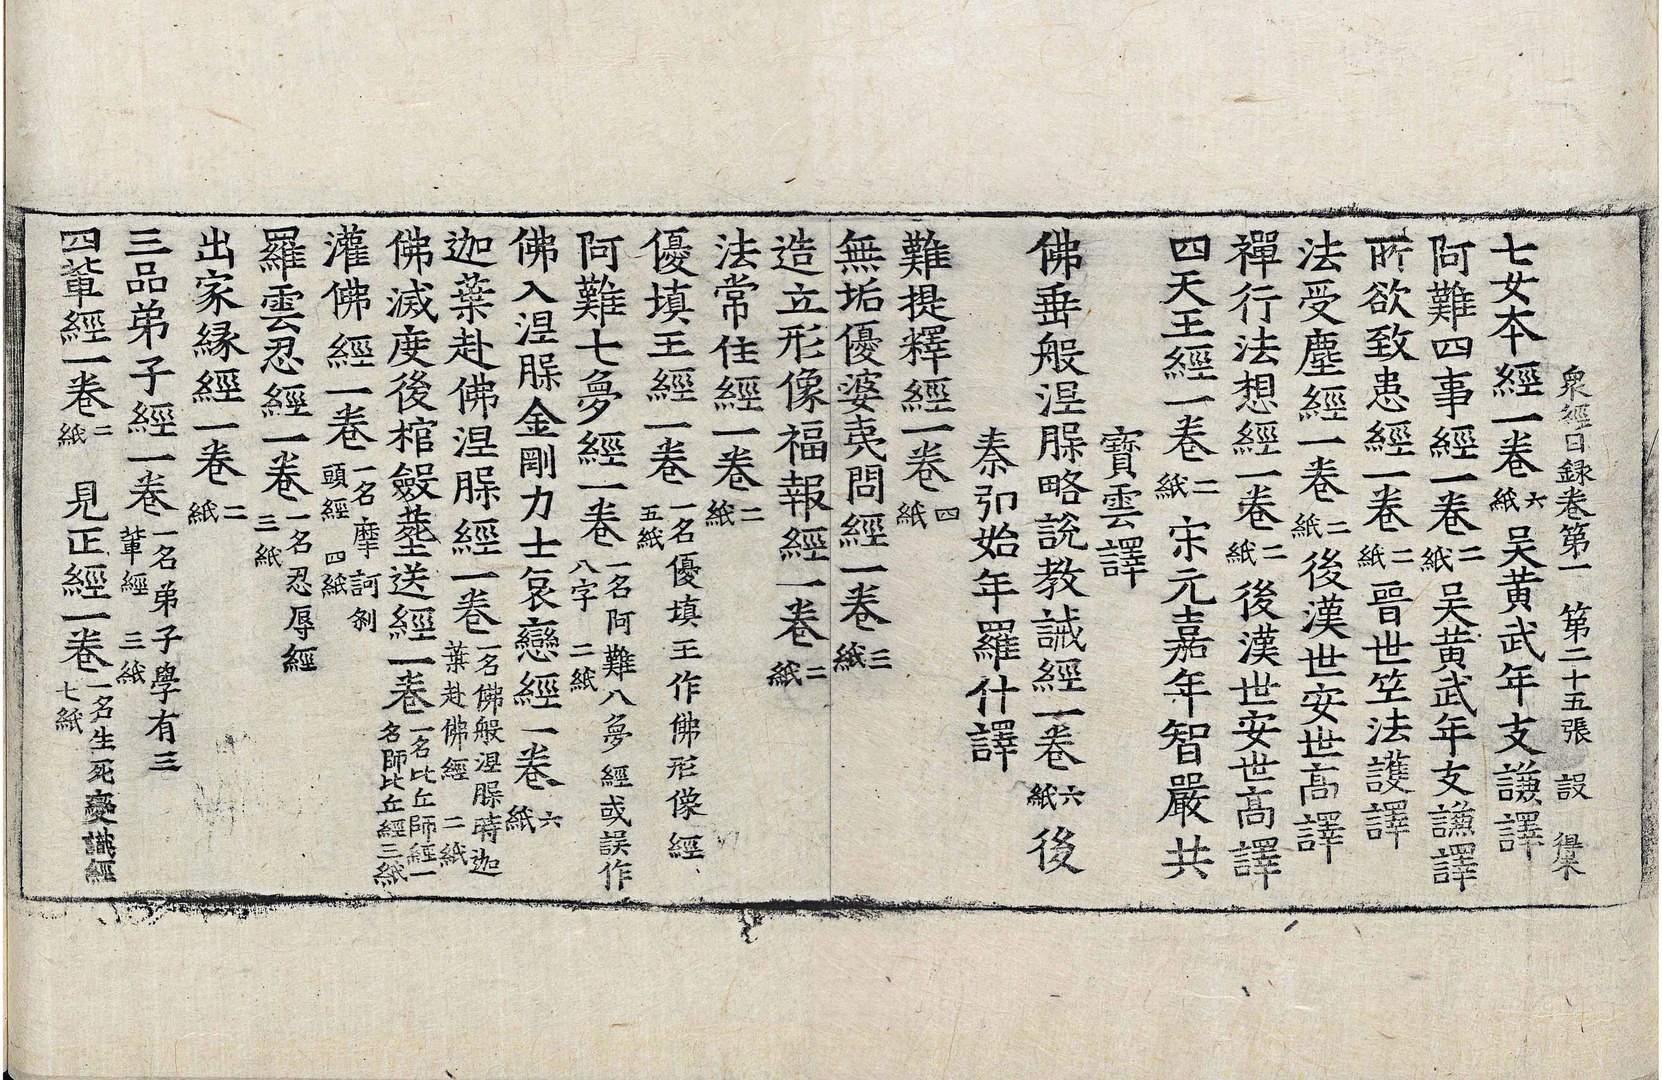 衆經目録卷第一　第二十五張　設　得㭐
七女本經一卷六紙　吴黄武年支謙譯
阿難四事經一卷二紙　吴黄武年支謙譯
所欲致患經一卷二紙　晉世竺法護譯
法受塵經一卷二紙　後漢世安世髙譯
禪行法想經一卷二紙　後漢世安世髙譯
四天王經一卷二紙　宋元嘉年智嚴共
寶雲譯
佛垂般涅槃略說教誡經一卷六紙　後
秦弘始年羅什譯
難提釋經一卷四紙
無垢優婆夷問經一卷三紙
造立形像福報經一卷二紙
法常住經一卷二紙
優填王經一卷一名優填王作佛形像經五紙
阿難七夢經一卷一名阿難八夢經或誤作八字　二紙
佛入涅槃金剛力士哀戀經一卷六紙
迦葉赴佛涅槃經一卷一名佛般涅槃時迦葉赴佛經　二紙
佛滅度後棺斂葬送經一卷一名比丘師經一名師比丘經三紙
灌佛經一卷一名摩訶刹頭經　四紙
羅雲忍經一卷一名忍辱經三紙
出家縁經一卷二紙
三品弟子經一卷一名弟子學有三輩經　三紙
四輩經一卷二紙　見正經一卷一名生死變識經七紙